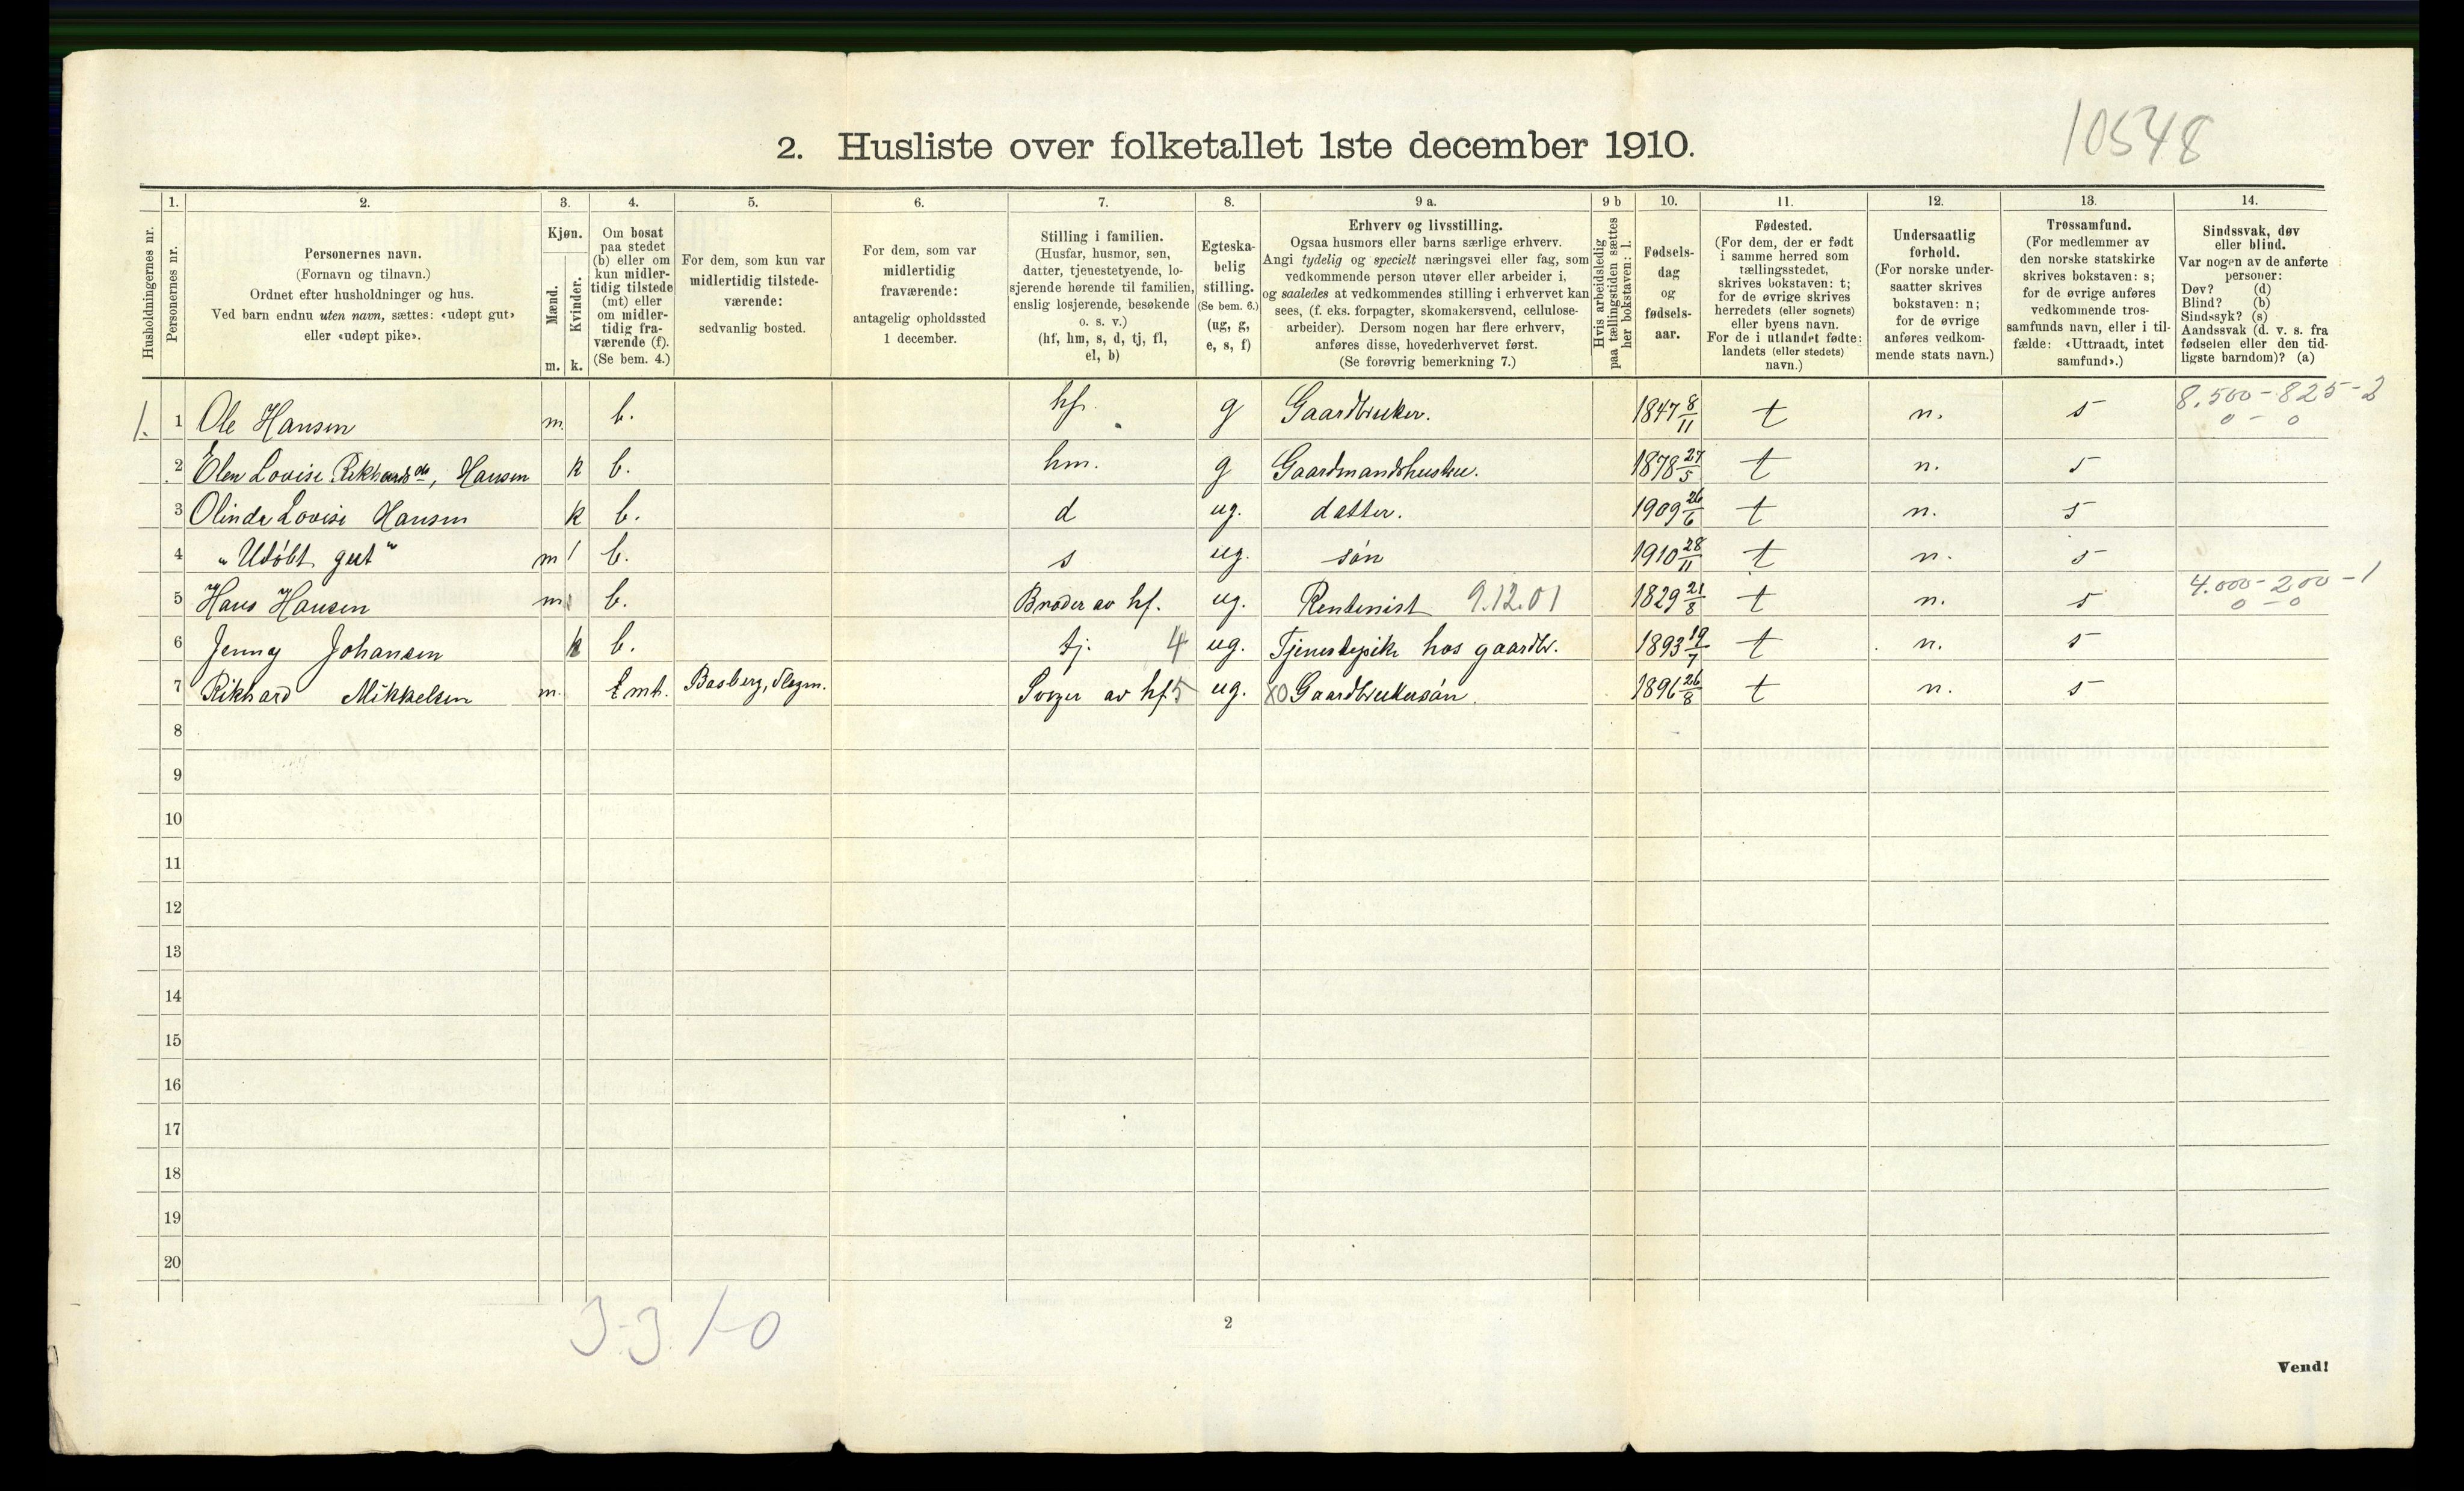 10548
2. Husliste over folketallet 1ste december 1910.
1. 2. 3. 4. 5. 6. 7. 8. 9 a. 9 b 10. 11. 12. 13. 14.
Husholdningernes nr.
Personernes nr.
Personernes navn.
(Fornavn og tilnavn.)
Ordnet efter husholdninger og hus.
Ved barn endnu uten navn, sættes: «udøpt gut»
eller «udøpt pike».
Kjøn.
Mænd.
Kvinder.
m. k.
Om bosat
paa stedet
(b) eller om
kun midler-
tidig tilstede
(mt) eller
om midler-
tidig fra-
værende (f).
(Se bem. 4.)
For dem, som kun var
midlertidig tilstede-
værende:
sedvanlig bosted.
For dem, som var
midlertidig
fraværende:
antagelig opholdssted
1 december.
Stilling i familien.
(Husfar, husmor, søn,
datter, tjenestetyende, lo-
sjerende hørende til familien,
enslig losjerende, besøkende
o. s. v.)
(hf, hm, s, d, tj, fl,
el, b)
Egteska-
belig
stilling.
(Se bem. 6.)
(ug, g,
e, s, f)
Erhverv og livsstilling.
Ogsaa husmors eller barns særlige erhverv.
Angi tydelig og specielt næringsvei eller fag, som
vedkommende person utøver eller arbeider i,
og saaledes at vedkommendes stilling i erhvervet kan
sees, (f. eks. forpagter, skomakersvend, cellulose-
arbeider). Dersom nogen har flere erhverv,
anføres disse, hovederhvervet først.
(Se forøvrig bemerkning 7.)
Hvis arbeidsledig
paa tællingstiden sættes
her bokstaven: l.
Fødsels-
dag
og
fødsels-
aar.
Fødested.
(For dem, der er født
i samme herred som
tællingsstedet,
skrives bokstaven: t;
for de øvrige skrives
herredets (eller sognets)
eller byens navn.
For de i utlandet fødte:
landets (eller stedets)
navn.)
Undersaatlig
forhold.
(For norske under-
saatter skrives
bokstaven: n;
for de øvrige
anføres vedkom-
mende stats navn.)
Trossamfund.
(For medlemmer av
den norske statskirke
skrives bokstaven: s;
for de øvrige anføres
vedkommende tros-
samfunds navn, eller i til-
fælde: «Uttraadt, intet
samfund».)
Sindssvak, døv
eller blind.
Var nogen av de anførte
personer:
Døv? (d)
Blind? (b)
Sindssyk? (s)
Aandssvak (d. v. s. fra
fødselen eller den tid-
ligste barndom)? (a)
1. 1 Ole Hansen m. b. hf. g Gaardbruker. 1847 8/11 t n. s 8.500-825-2
0 - 0
2 Elen Lovise Rikhardsdr, Hansen k b. hm. g Gaardmandshustru. 1878 27/5 t n. s
3 Olinda Lovise Hansen k b. d ug. datter. 1909 26/6 t n. s
4 "Udöbt gut" m b. s ug. sön 1910 28/11 t n. s
5 Hans Hansen m. b. Broder av hf. ug. Rentenist 9.12.01 1829 21/8 t n. s 4.000-200-1
0 - 0
6 Jenny Johansen k b. tj. 4 ug. Tjenestepike hos gaardbr. 1893 19/7 t n. s
7 Rikhard Mikkelsen m. mt. Basberg, Slagen. Svoger av hf 5 ug. XO Gaardbrukersön. 1896 26/8 t n. s
8
9
10
11
12
13
14
15
16
17
18
19
20
3-3 1-0
2
Vend!